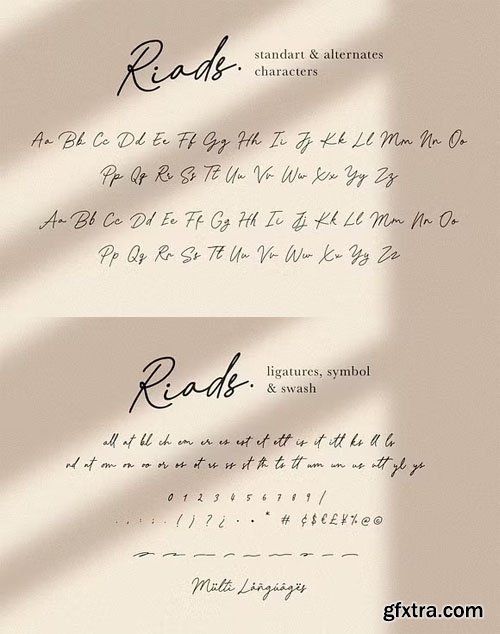 Riads.
standart & alternates
characters
Aa Bb Cc Dd Ee Ff Gg Hh Ii Jj Kk Ll Mm Nn Oo
Pp Qq Rr Ss Tt Uu Vv Ww Xx Yy Zz
Aa Bb Cc Dd Ee Ff Gg Hh Ii Jj Kk Ll Mm Nn Oo
Pp Qq Rr Ss Tt Uu Vv Ww Xx Yy Zz
Riads.
ligatures, symbol
& swash
all at bl ch em er es est et ett is it itt ks ll ls
nd nt om on oo or os ot rs ss st th ts tt um un us utt yl ys
0 1 2 3 4 5 6 7 8 9 /
. , : ; . ! j ? ¿ • • * # ¢ $ € £ ¥ % @ ©
Mülti Låñgúâgës
gfxtra.com